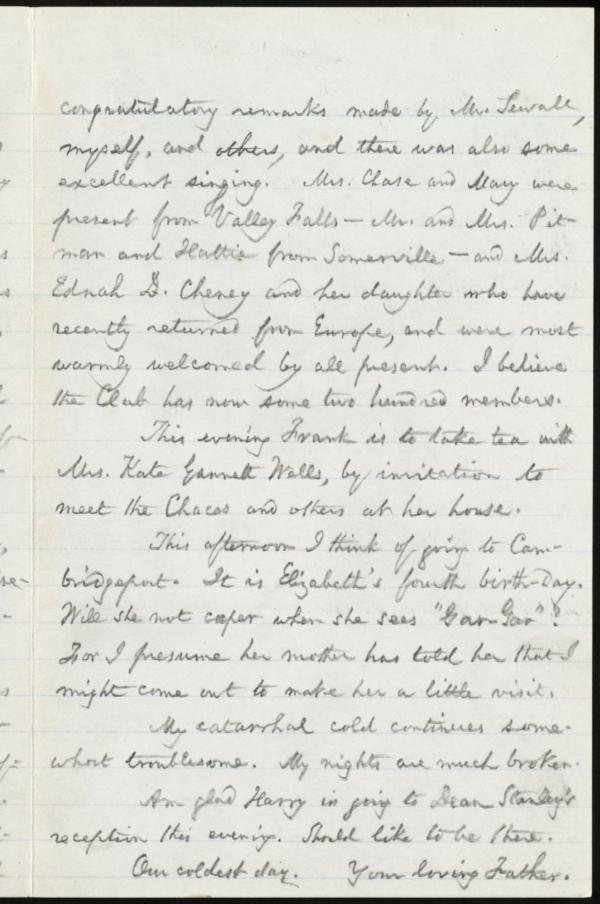 congratulatory remarks made by Mr. Sewall,
myself, and others, and there was also some
excellent singing. Mrs. Chase and Mary were
present from Valley Falls — Mr. and Mrs. Pit-
man and Hattie from Somerville — and Mrs.
Ednah D. Cheney and her daughter who have
recently returned from Europe, and were most
warmly welcomed by all present. I believe
the Club has now some two hundred members.
This evening Frank is to take tea with
Mrs. Kate Gannett Wells, by invitation to
meet the Chaces and others at her house.
This afternoon I think of going to Cam-
bridgeport. It is Elizabeth's fourth birth-day.
Will she not caper when she sees "Gar-Gar"?
For I presume her mother has told her that I
might come out to make her a little visit.
My catarrhal cold continues some-
what troublesome. My nights are much broken.
Am glad Harry is going to Dean Stanley's
reception this evening. Should like to be there.
Our coldest day. Your loving Father.